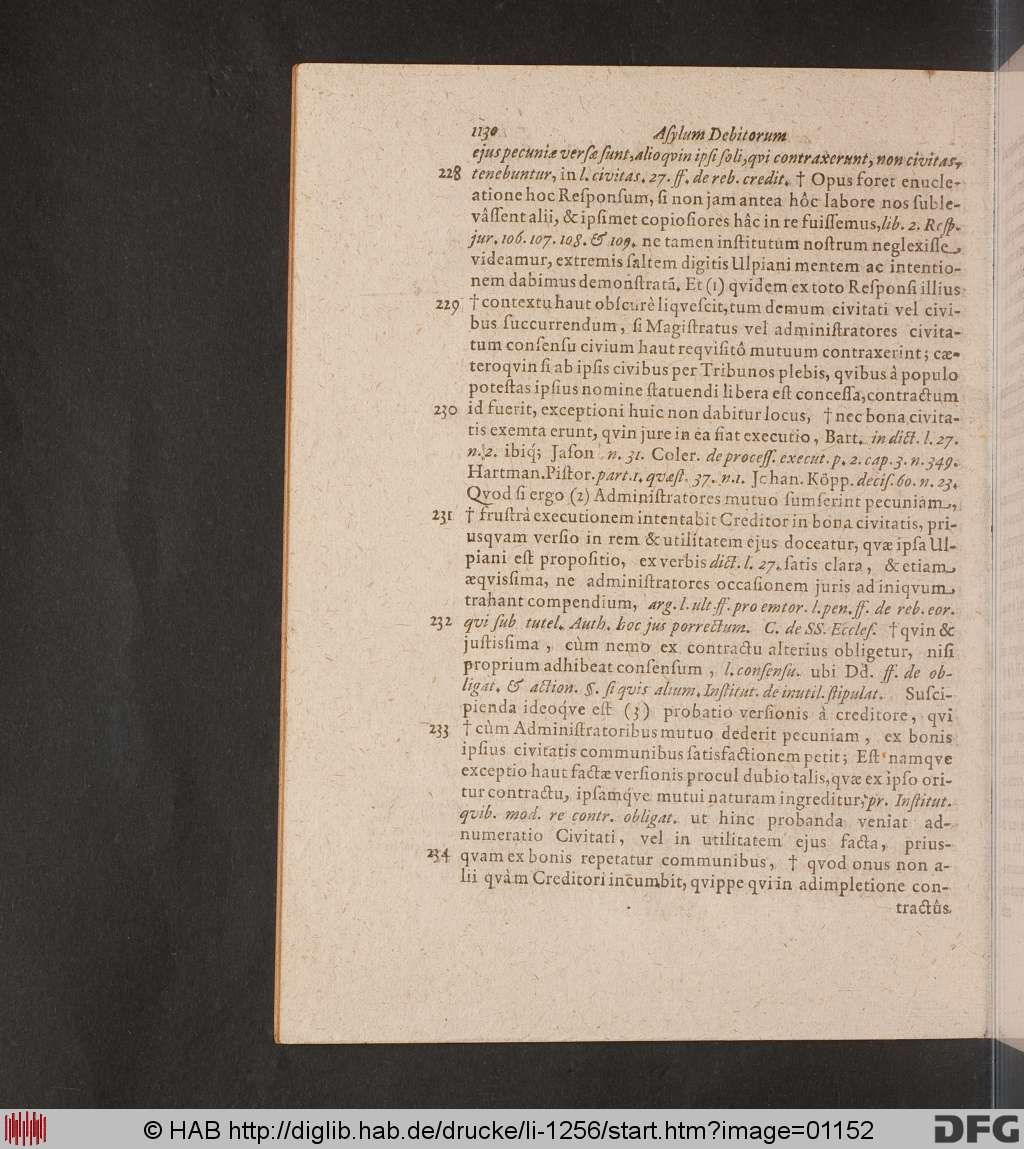 1130 Aſylum Debitorum
ejus pecuniæ verſæ ſunt, alioqvin ipſi ſoli, qvi contraxerunt, non civitas,
228 tenebuntur, in l. civitas. 27. ff. de reb. credit. † Opus foret enucle-
atione hoc Reſponſum, ſi non jam antea hôc labore nos ſuble-
vâſſent alii, & ipſimet copioſiores hâc in re fuiſſemus, lib. 2. Reſp.
jur. 106. 107. 108. & 109. ne tamen inſtitutum noſtrum neglexiſſe
videamur, extremis ſaltem digitis Ulpiani mentem ac intentio-
nem dabimus demonſtratã. Et (1) qvidem ex toto Reſponſi illius
229 † contextu haut obſcurè liqveſcit, tum demum civitati vel civi-
bus ſuccurrendum, ſi Magiſtratus vel adminiſtratores civita-
tum conſenſu civium haut reqviſitô mutuum contraxerint; cæ-
teroqvin ſi ab ipſis civibus per Tribunos plebis, qvibus â populo
poteſtas ipſius nomine ſtatuendi libera eſt conceſſa, contractum
230 id fuerit, exceptioni huic non dabitur locus, † nec bona civita-
tis exemta erunt, qvin jure in ea fiat executio, Bart. in dict. l. 27.
n. 2. ibiq́; Jaſon n. 31. Coler. de proceſſ. execut. p. 2. cap. 3. n. 349.
Hartman. Piſtor. part. 1. qvæſt. 37. n. 1. Johan. Köpp. deciſ. 60. n. 23.
Qvod ſi ergo (2) Adminiſtratores mutuo ſumſerint pecuniam,
231 † fruſtrà executionem intentabit Creditor in bona civitatis, pri-
usqvam verſio in rem & utilitatem ejus doceatur, qvæ ipſa Ul-
piani eſt propoſitio, ex verbis dict. l. 27. ſatis clara, & etiam
æqviſſima, ne adminiſtratores occaſionem juris ad iniqvum
trahant compendium, arg. l. ult. ff. pro emtor. l. pen. ff. de reb. eor.
232 qvi ſub tutel. Auth. hoc jus porrectum. C. de SS. Eccleſ. † qvin &
juſtiſſima, cùm nemo ex contractu alterius obligetur, niſi
proprium adhibeat conſenſum, l. conſenſu. ubi Dd. ff. de ob-
ligat. & action. §. ſi quis alium. Inſtitut. de inutil. ſtipulat. Suſci-
pienda ideoq́ve eſt (3) probatio verſionis à creditore, qvi
233 † cùm Adminiſtratoribus mutuo dederit pecuniam, ex bonis
ipſius civitatis communibus ſatisfactionem petit; Eſt namqve
exceptio haut factæ verſionis procul dubio talis, qvæ ex ipſo ori-
tur contractu, ipſamq́ve mutui naturam ingreditur, pr. Inſtitut.
qvib. mod. re contr. obligat. ut hinc probanda veniat ad-
numeratio Civitati, vel in utilitatem ejus facta, prius-
234 qvam ex bonis repetatur communibus, † qvod onus non a-
lii qvàm Creditori incumbit, qvippe qvi in adimpletione con-
tractûs
© HAB http://diglib.hab.de/drucke/li-1256/start.htm?image=01152
DFG